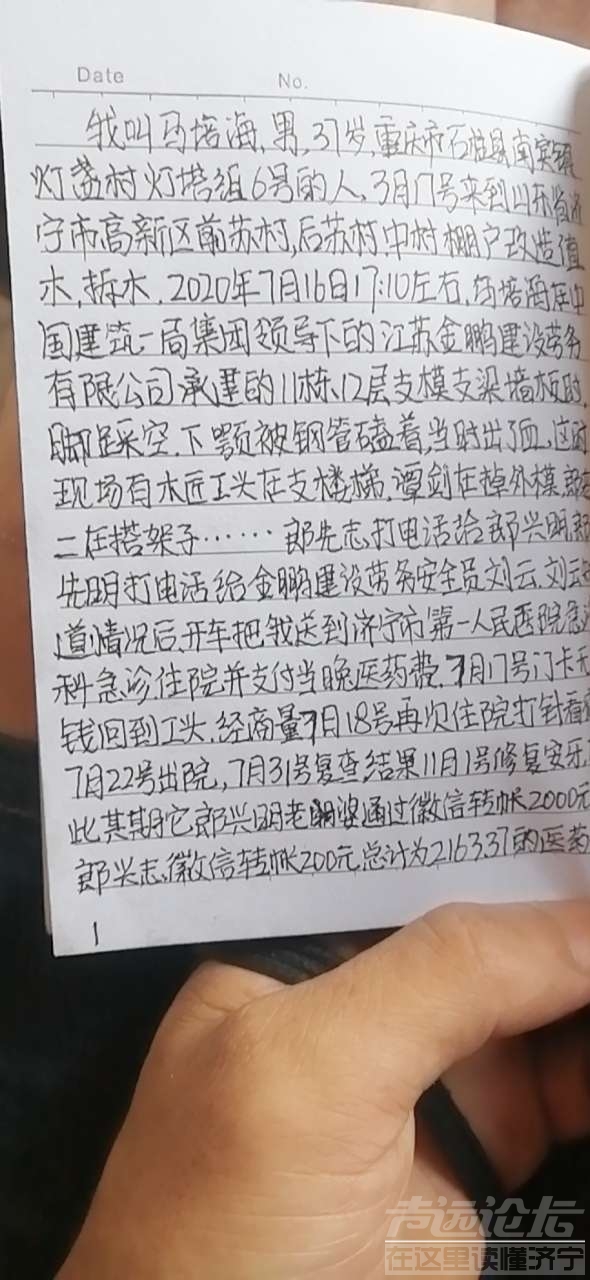 Date No.
我叫马培海,男,37岁,重庆市石柱县南宾镇
灯盏村灯塔组6号的人,3月17号来到山东省济
宁市高新区前苏村,后苏村,中村棚户改造
木,拆木,2020年7月16日17:10左右,马培海在中
国建筑一局集团领导下的江苏金鹏建设劳务
有限公司承建的11栋12层支模支梁墙板时,
脚踩空,下颚被钢管磕着,当时出了血,这时
现场有木匠工头在支楼梯,谭剑在掉外模,郎
二在搭架子……郎先志打电话给郎兴明,郎
先明打电话给金鹏建设劳务安全员刘云,刘云
道情况后,开车把我送到济宁市第一人民医院急
科急诊住院并支付当晚医药费,7月17号门卡无
钱回到工头,经商量7月18号再次住院打针看
7月22号出院,7月31号复查结果11月1号修复安牙
此其期它郎兴明老婆通过微信转帐2000元
郎兴志微信转帐200元总计为21633.7的医药
1
声远论坛
在这里读懂济宁